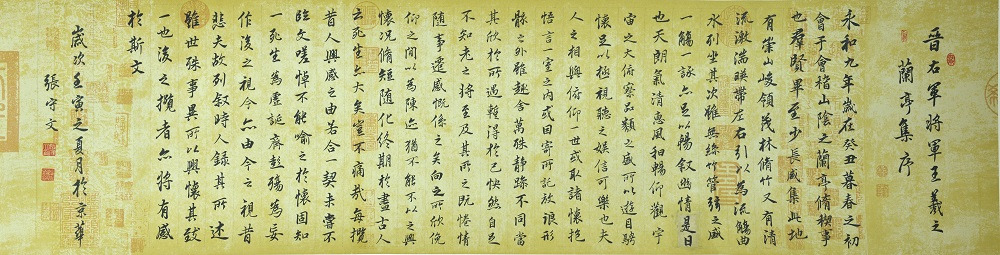 晋右軍將軍王羲之
蘭亭集序
永和九年歲在癸丑暮春之初
會于會稽山陰之蘭亭脩稧事
也群賢畢至少長咸集此地
有崇山峻領茂林脩竹又有清
流激湍暎帶左右引以為流觴曲
水列坐其次雖無絲竹管弦之盛
一觴一詠亦足以暢叙幽情是日
也天朗氣清惠風和暢仰觀宇
宙之大俯察品類之盛所以遊目騁
懷足以極視聽之娱信可樂也夫
人之相與俯仰一世或取諸懷抱
悟言一室之内或因寄所託放浪形
骸之外雖趣舍萬殊静躁不同當
其欣於所遇輙得於己快然自足
不知老之将至及其所之既惓情
随事遷感慨係之矣向之所欣俛
仰之間以為陳迹猶不能不以之興
懷况脩短随化終期於盡古人
云死生亦大矣豈不痛哉每攬
昔人興感之由若合一契未嘗不
臨文嗟悼不能喻之於懷固知
一死生為虚誕齊彭殤為妄
作後之視今亦由今之視昔
悲夫故列叙時人録其所述
雖世殊事異所以興懷其致
一也後之攬者亦将有感
於斯文
歲次壬寅之夏月於京華
張守文